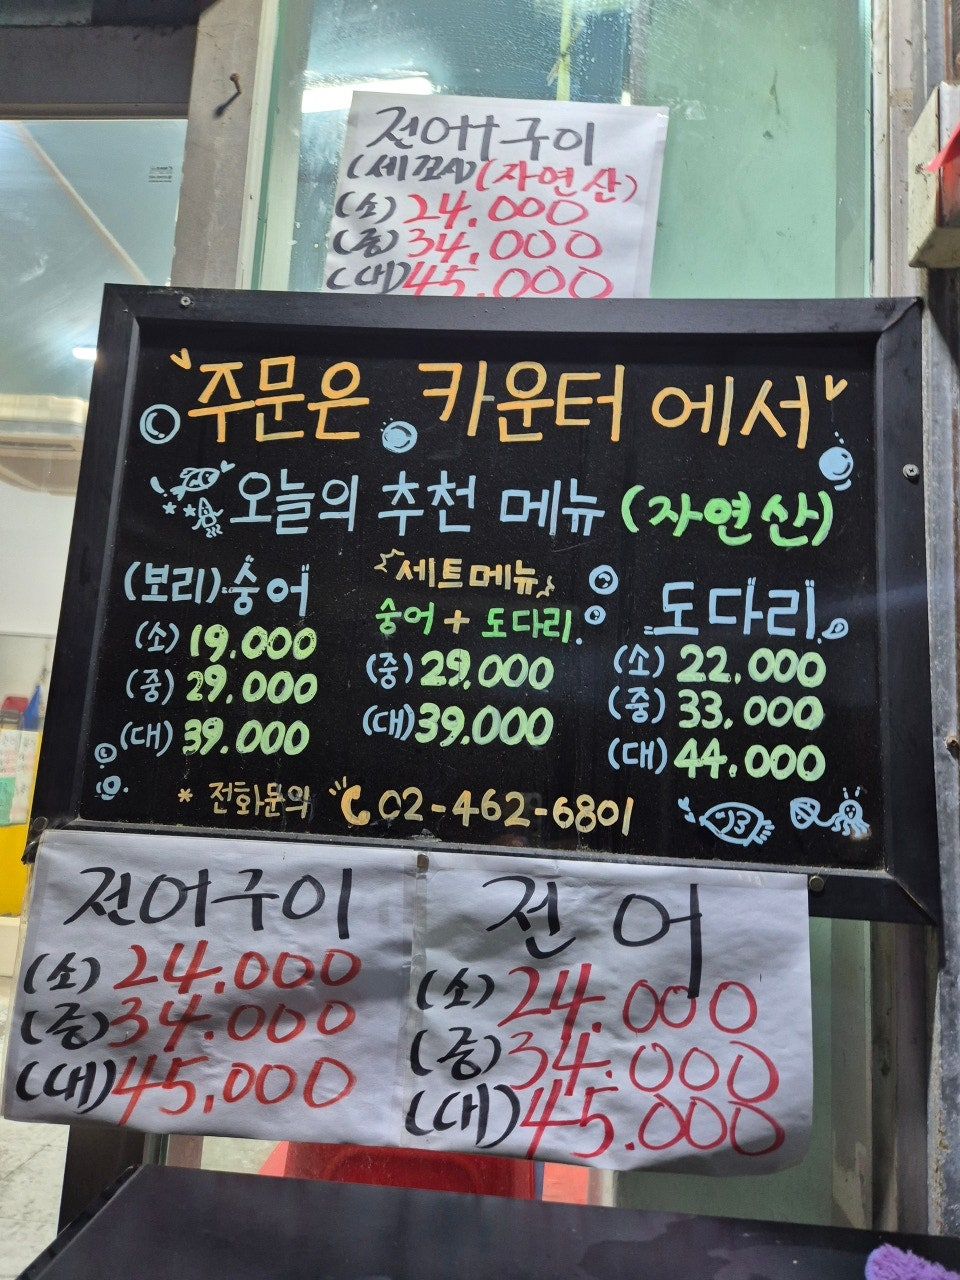 전어구이
(세꼬시)(자연산)
(소) 24.000
(중) 34.000
(대) 45.000
주문은 카운터에서
오늘의 추천 메뉴 (자연산)
(보리)숭어
(소) 19.000
(중) 29.000
(대) 39.000
세트메뉴
숭어 + 도다리
(중) 29.000
(대) 39.000
도다리
(소) 22.000
(중) 33.000
(대) 44.000
* 전화문의 02-462-6801
전어구이
(소) 24.000
(중) 34.000
(대) 45,000
전어
(소) 24.000
(중) 34.000
(대) 45.000